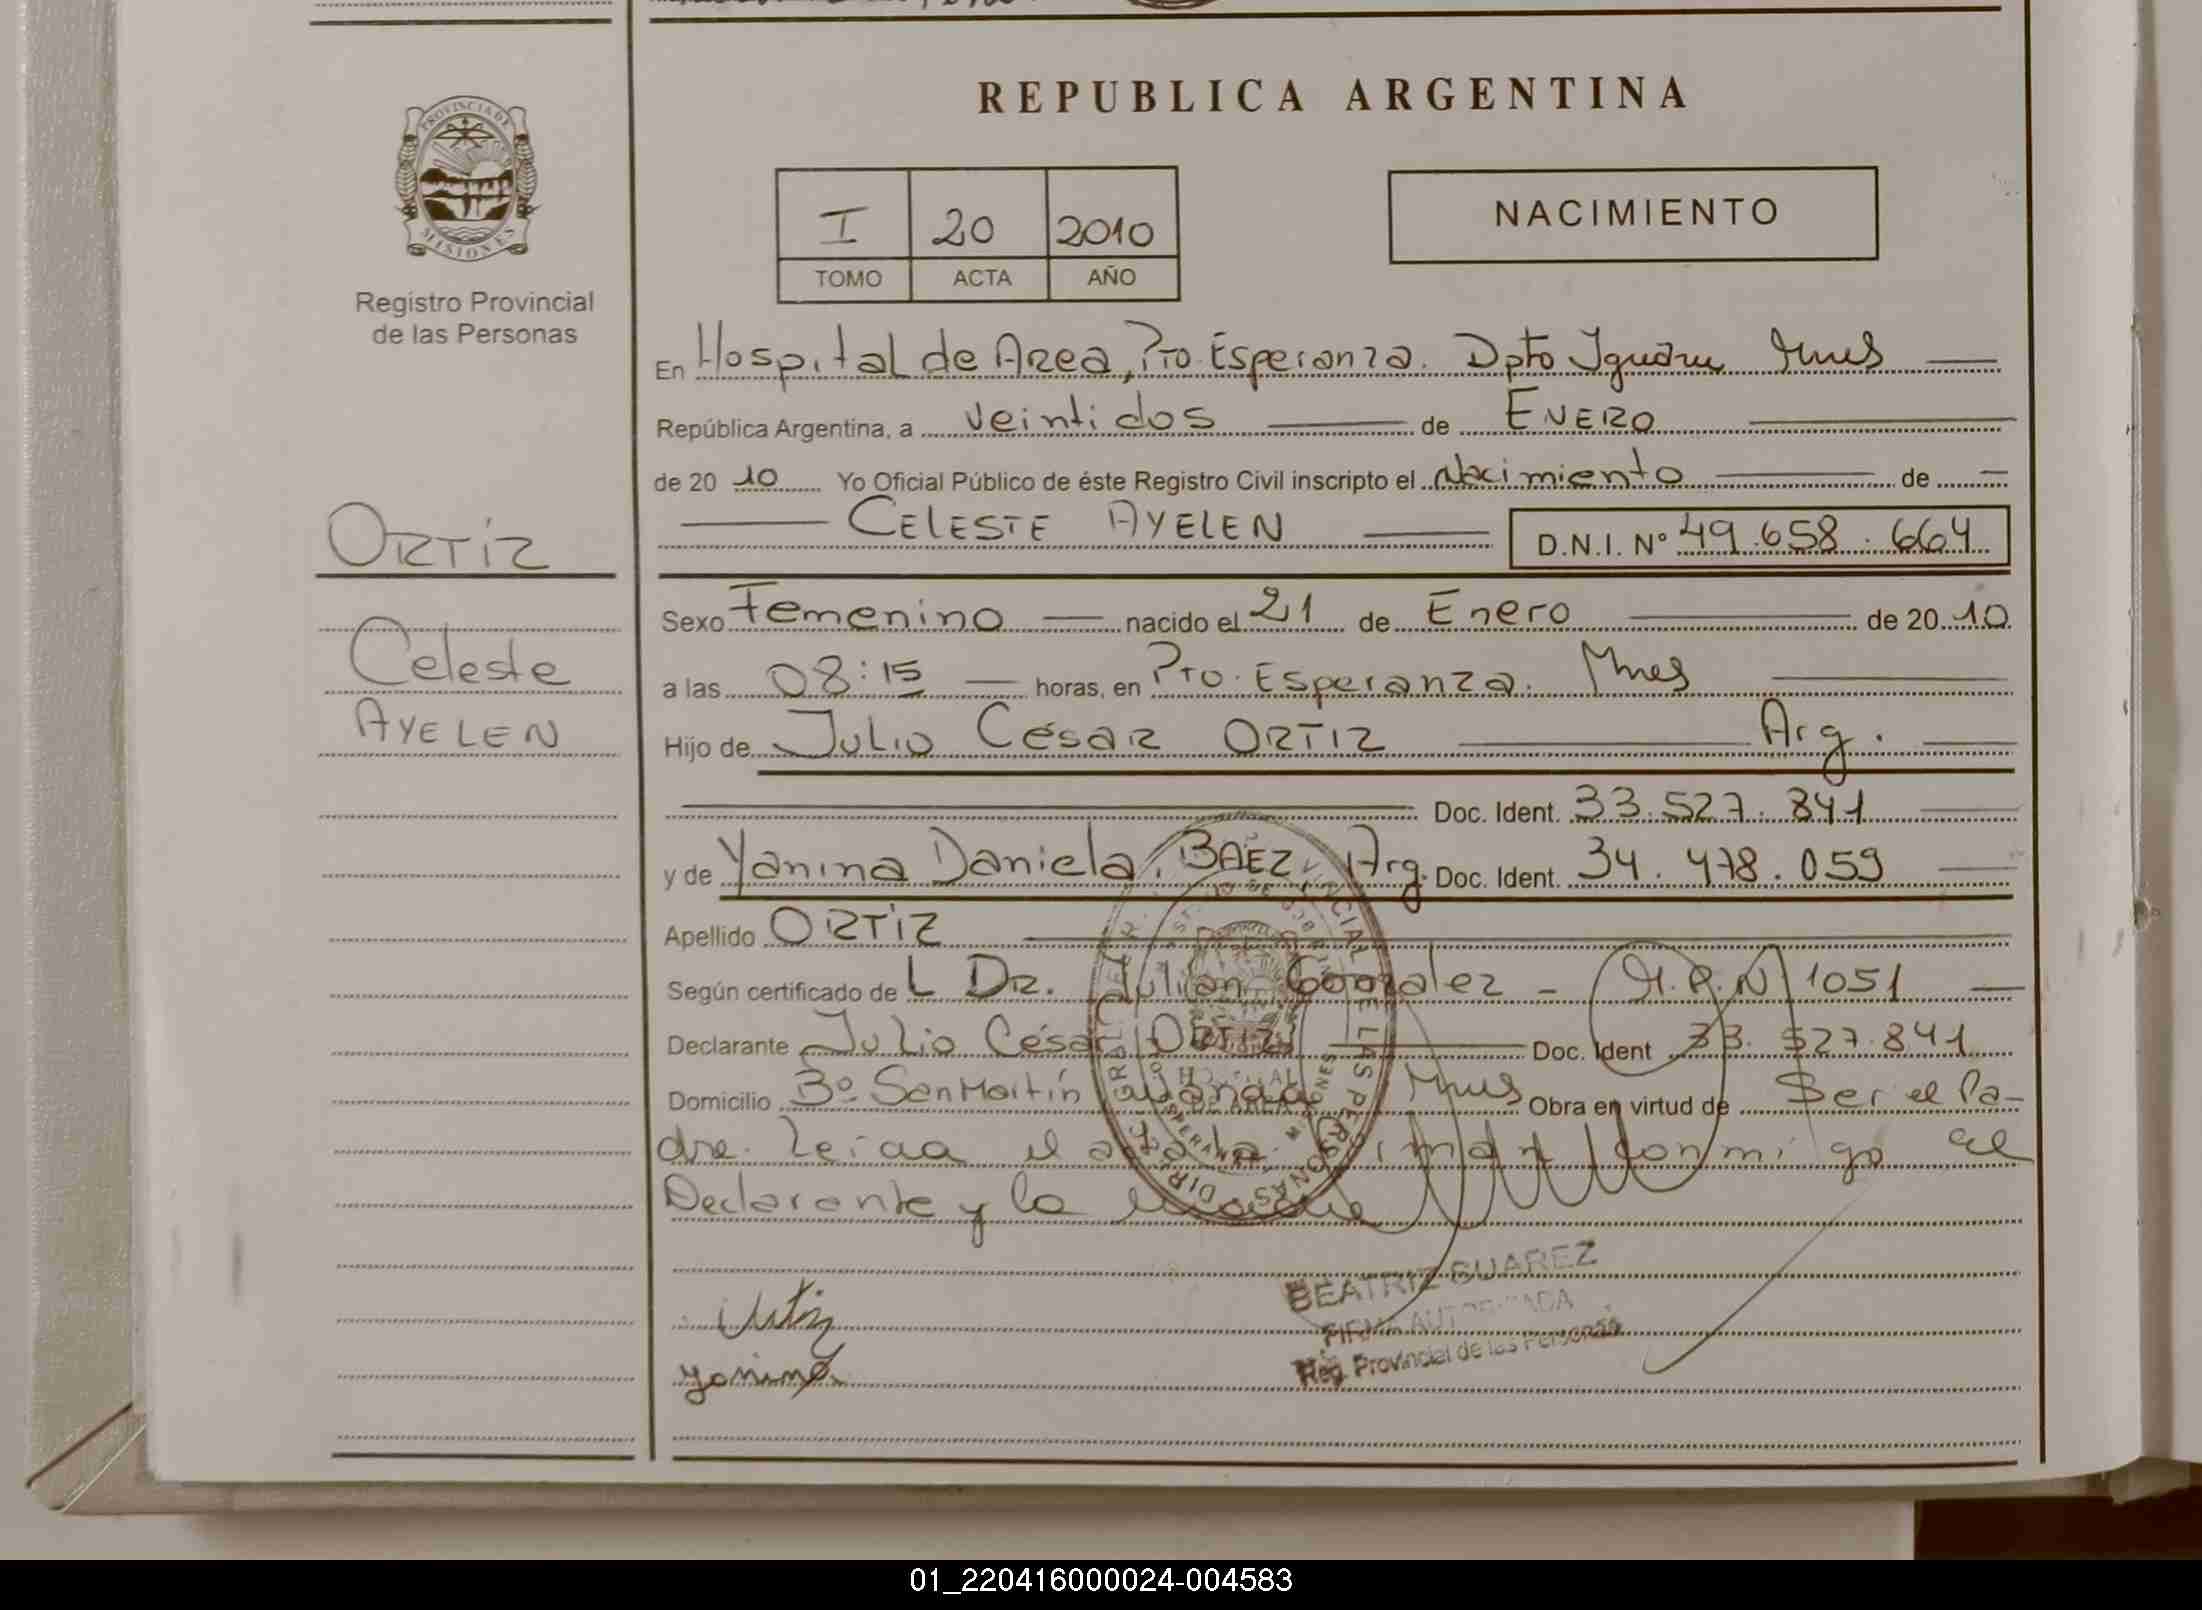 REPUBLICA ARGENTINA
PROVINCIA DE
MISIONES
Registro Provincial
de las Personas
I 20 2010
TOMO ACTA AÑO
NACIMIENTO
En Hospital de Area, Pto Esperanza. Dpto Iguazu Mnes
República Argentina, a veintidos de ENERO
de 20 10 Yo Oficial Público de éste Registro Civil inscripto el Nacimiento de
CELESTE AYELEN D.N.I. Nº 49.658.664
ORTIZ
Celeste
AYELEN
Sexo Femenino nacido el 21 de Enero de 20 10
a las 08:15 horas, en Pto. Esperanza. Mnes
Hijo de Julio César ORTIZ Arg.
Doc. Ident. 33.527.841
y de Yanina Daniela BAEZ, Arg. Doc. Ident. 34.478.059
Apellido ORTIZ
Según certificado de L Dr. Julian Gonzalez - M.P.N 1051
Declarante Julio César ORTIZ Doc. Ident 33.527.841
Domicilio Bº San Martín Wanda Mnes Obra en virtud de Ser el Pa-
dre. Leida el acta la firman conmigo el
Declarante y la Madre
Yanina
BEATRIZ SUAREZ
FIRMA AUTORIZADA
Reg. Provincial de las Personas
01_220416000024-004583